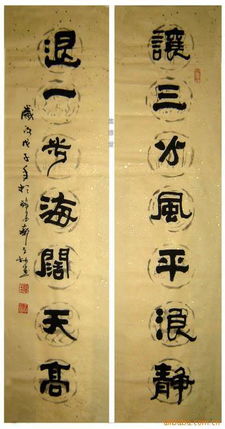 讓三分風平浪靜
退一步海闊天高
歲次戊子年於